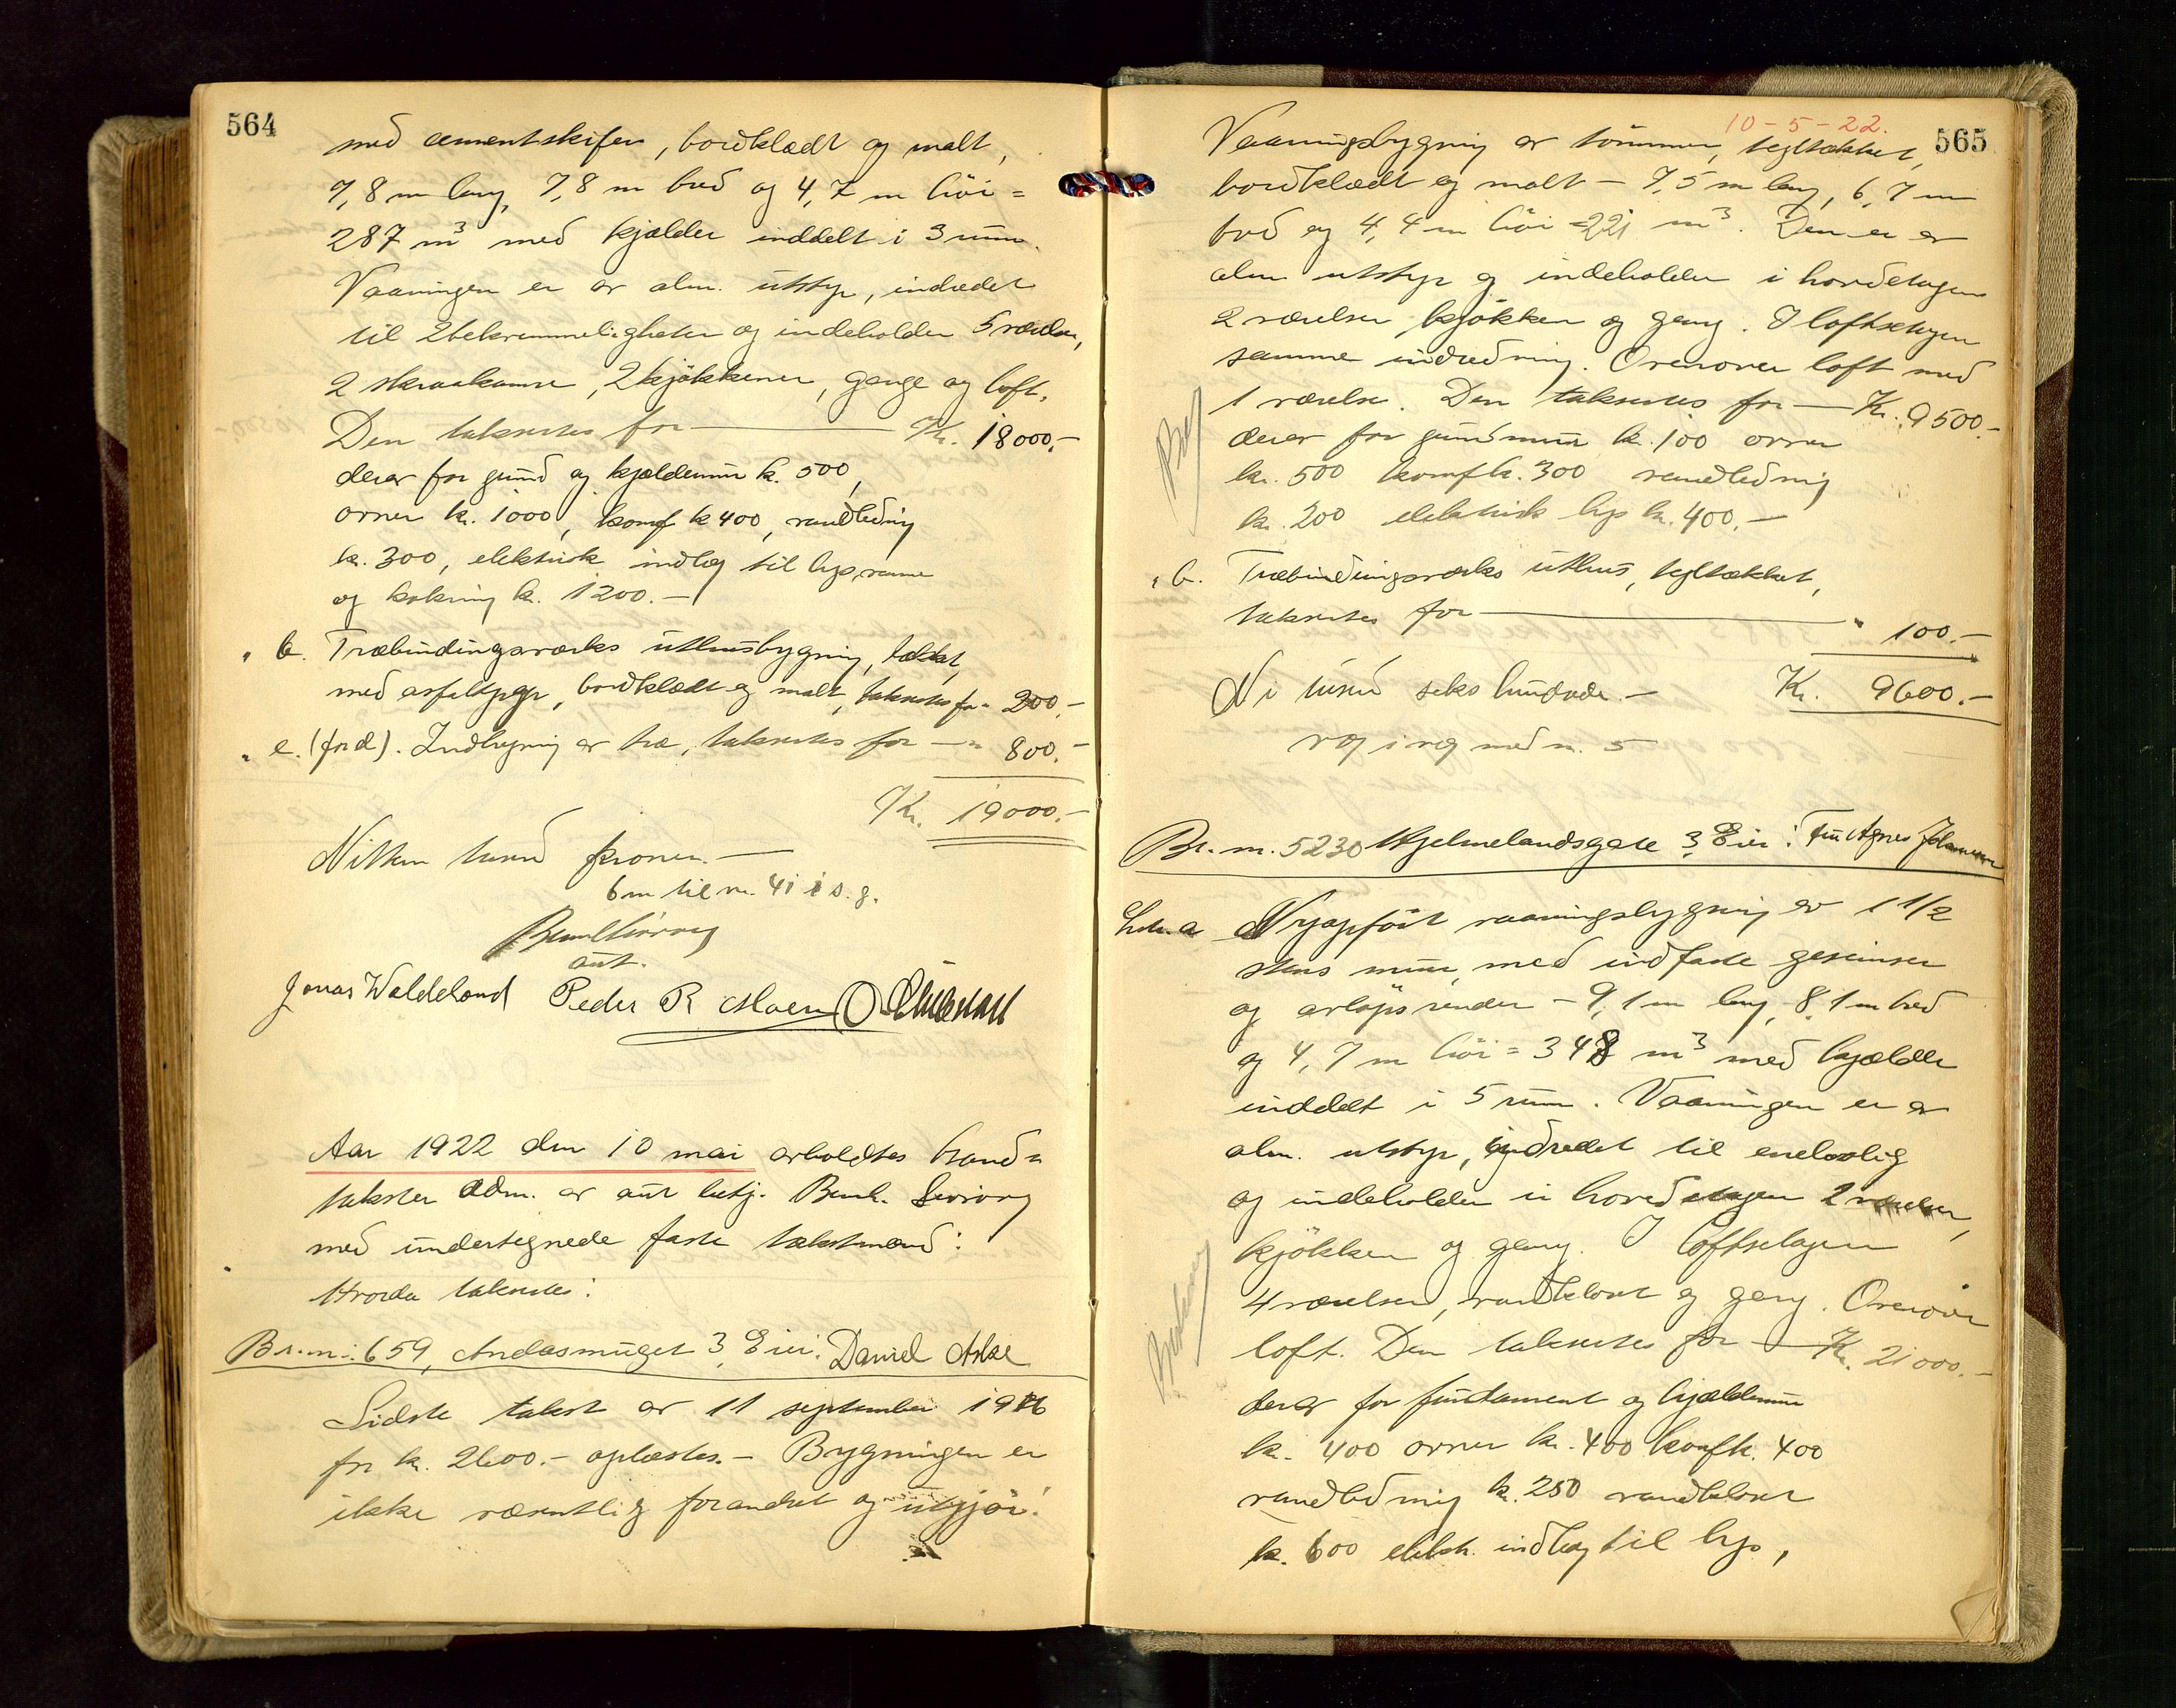 564
med cementskifer, bordklædt og malt,
7,8 m lang, 7,8 m bred og 4,7 m höi =
287 m³ med kjælder inddelt i 3 rum.
Vaaningen er av alm. utstyr, indredet
til 2 bekvemmeligheter og indeholder 5 værelser,
2 skraakamre, 2 kjökkener, gange og loft.
Den takseres for — Kr. 18000.-
derav for grund og kjældermur kr. 500,
ovner kr. 1000, komf kr 400, vandledning
kr. 300, elektrisk indlæg til lys, varme
og kokning kr. 1200.-
" b. Træbindingsverks uthusbygning, tækket,
med asfaltpap, bordklædt og malt, takseres for " 200.-
" e. (for d). Indhegning av træ, takseres for — " 800.-
Kr. 19000.-
Nitten tusend kroner.—
6 m til nr. 41 i s. g.
aut.
Jonas Waldeland Peder R. Moen
Aar 1922 den 10 mai avholdtes brand-
takster adm. av aut betj. Bernh.
med undertegnede faste takstmænd:
Hvorda takseres:
Br.nr. 659, Andasmuget 3, Eier: Daniel Aske
Sidste takst av 11 september 1916
for kr. 2600.- oplæstes.- Bygningen er
ikke væsentlig forandret og utgjör:
10-5-22.
565
Vaaningsbygning av tömmer, tegltækket,
bordklædt og malt - 7,5 m lang, 6,7 m
bred og 4,4 m höi = 221 m³. Den er av
alm utstyr og indeholder i hovedetagen
2 værelser kjökken og gang. I loftsetagen
samme indredning. Ovenover loft med
1 værelse. Den takseres for — Kr. 9500.-
derav for grundmur kr. 100 ovner
kr. 500 komf kr. 300 vandledning
kr. 200 elektrisk lys kr. 400.-
" b. Træbindingsverks uthus, tegltækket,
takseres for — " 100.-
Ni tusend seks hundrede.- Kr. 9600.-
Br. nr. 5230 Hjelmelandsgate 3, Eier: Fru Agnes Johannesen
Litr. a Nyopfört vaaningsbygning av 1 1/2
stens mur, med indfaste gesimser
og avlöpsrender - 9,1 m lang, 8,1 m bred
og 4,7 m höi = 348 m³ med kjælder
inddelt i 5 rum. Vaaningen er av
alm. utstyr, indredet til enebolig
og indeholder i hovedetagen 2 værelser,
kjökken og gang. I loftsetagen
4 værelser, vandkloset og gang. Ovenover
loft. Den takseres for — Kr. 21000.-
derav for fundament og kjældermur
kr. 400 ovner kr. 400 komf kr. 400
vandledning kr. 250 vandkloset
kr. 600 elektr. indlæg til lys,